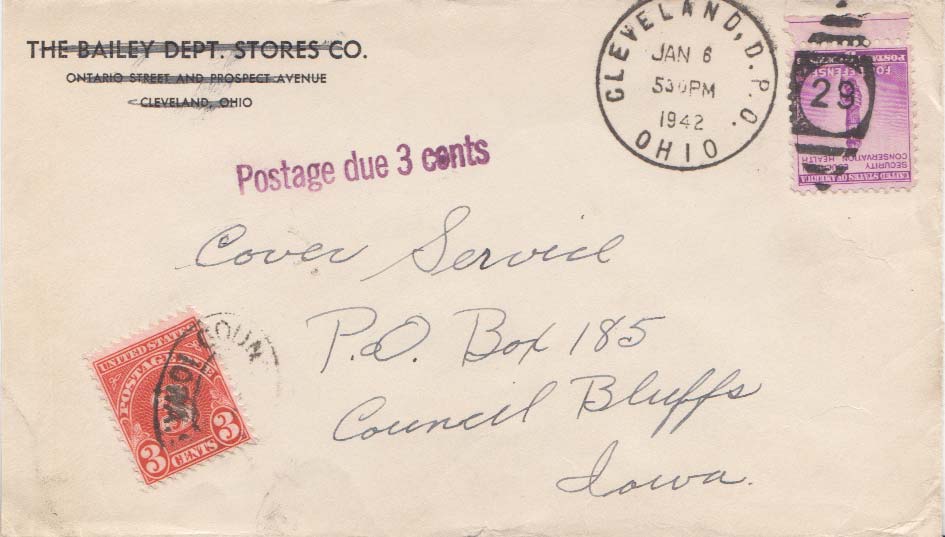 THE BAILEY DEPT. STORES CO.
ONTARIO STREET AND PROSPECT AVENUE
CLEVELAND, OHIO
CLEVELAND, D.P.O.
JAN 6
530PM
1942
OHIO
29
POSTAGE
FOR DEFENSE
SECURITY EDUCATION HEALTH
CONSERVATION
UNITED STATES OF AMERICA
Postage due 3 cents
Cover Service
P.O. Box 185
Council Bluffs
Iowa.
COUN
IOWA
UNITED STATES
POSTAGE DUE
3 CENTS 3